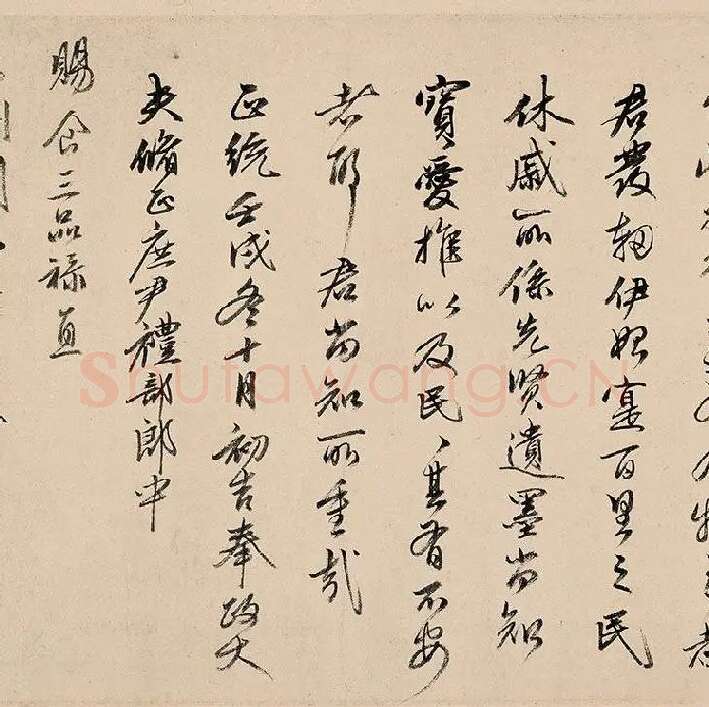 君發軔伊始寔百里之民
休戚所係先賢遺墨尚知
寶愛推以及民、其有不安
者耶君尚知所重哉
正統壬戌冬十月初吉奉政大
夫脩正庶尹禮部郎中
賜食三品祿直
Shufawang.CN